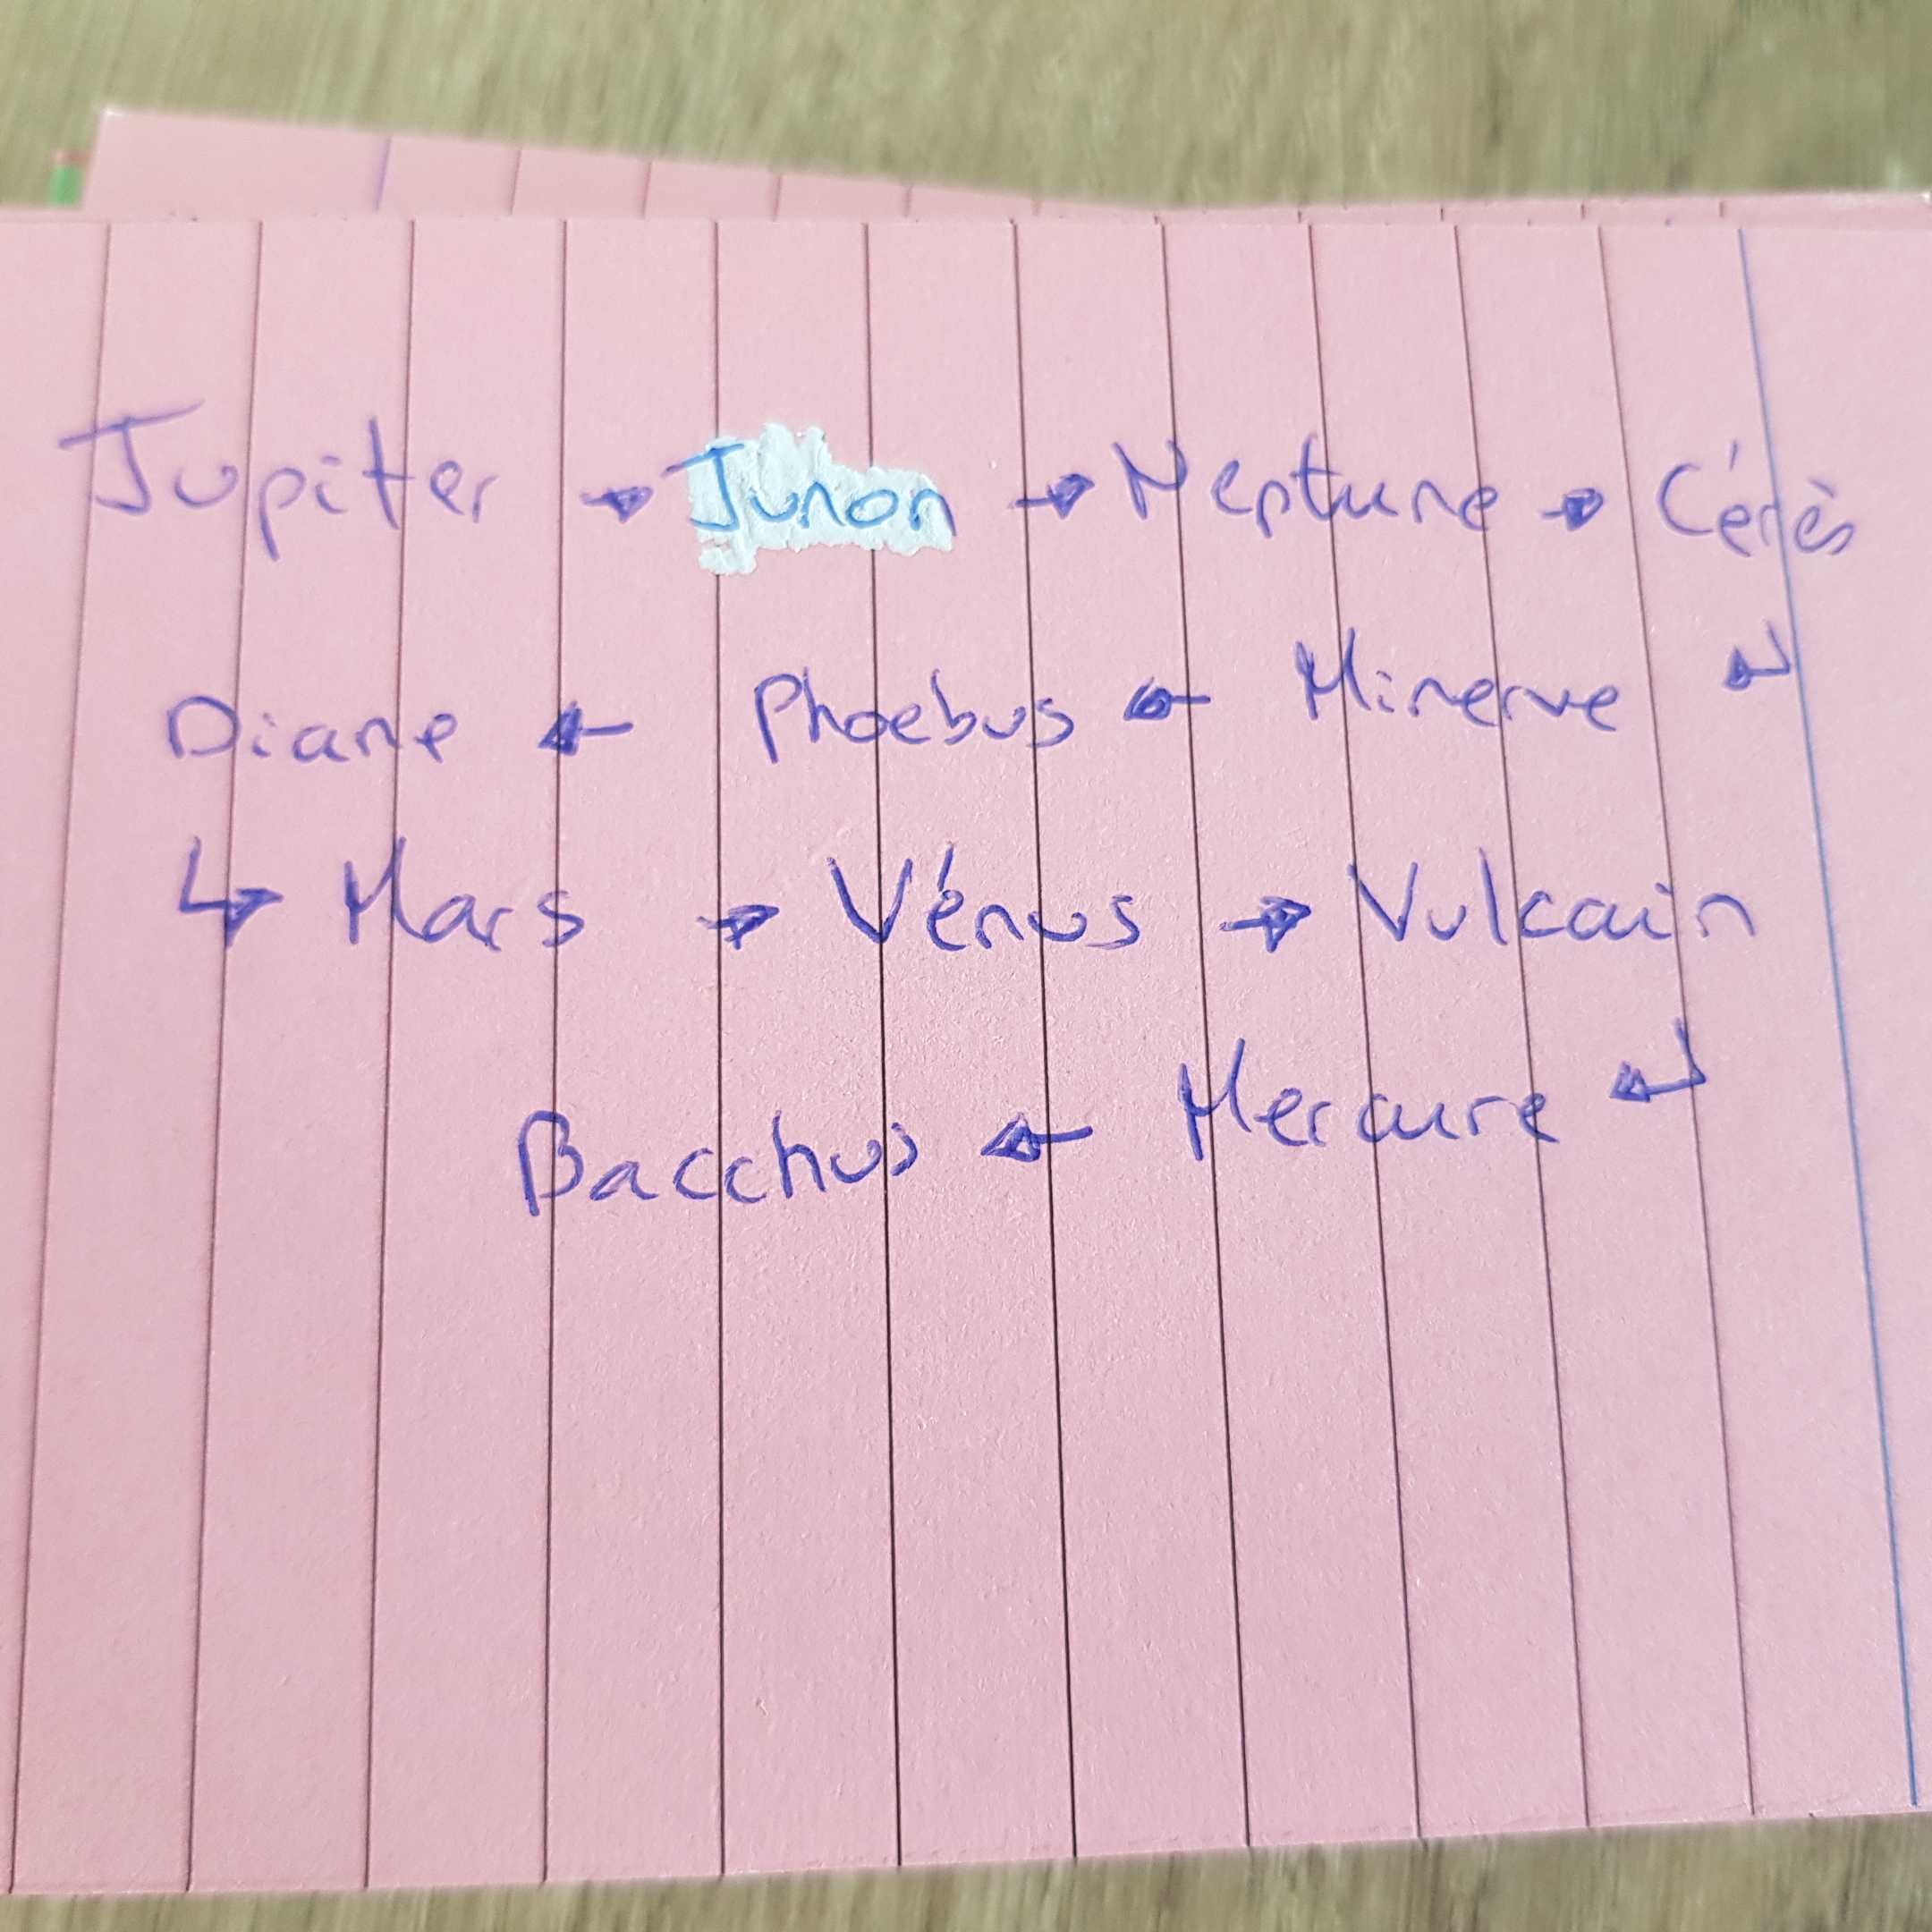 Jupiter → Junon → Neptune → Cérès
Diane ← Phoebus ← Minerve ↲
↳ Mars → Vénus → Vulcain
Bacchus ← Mercure ↲